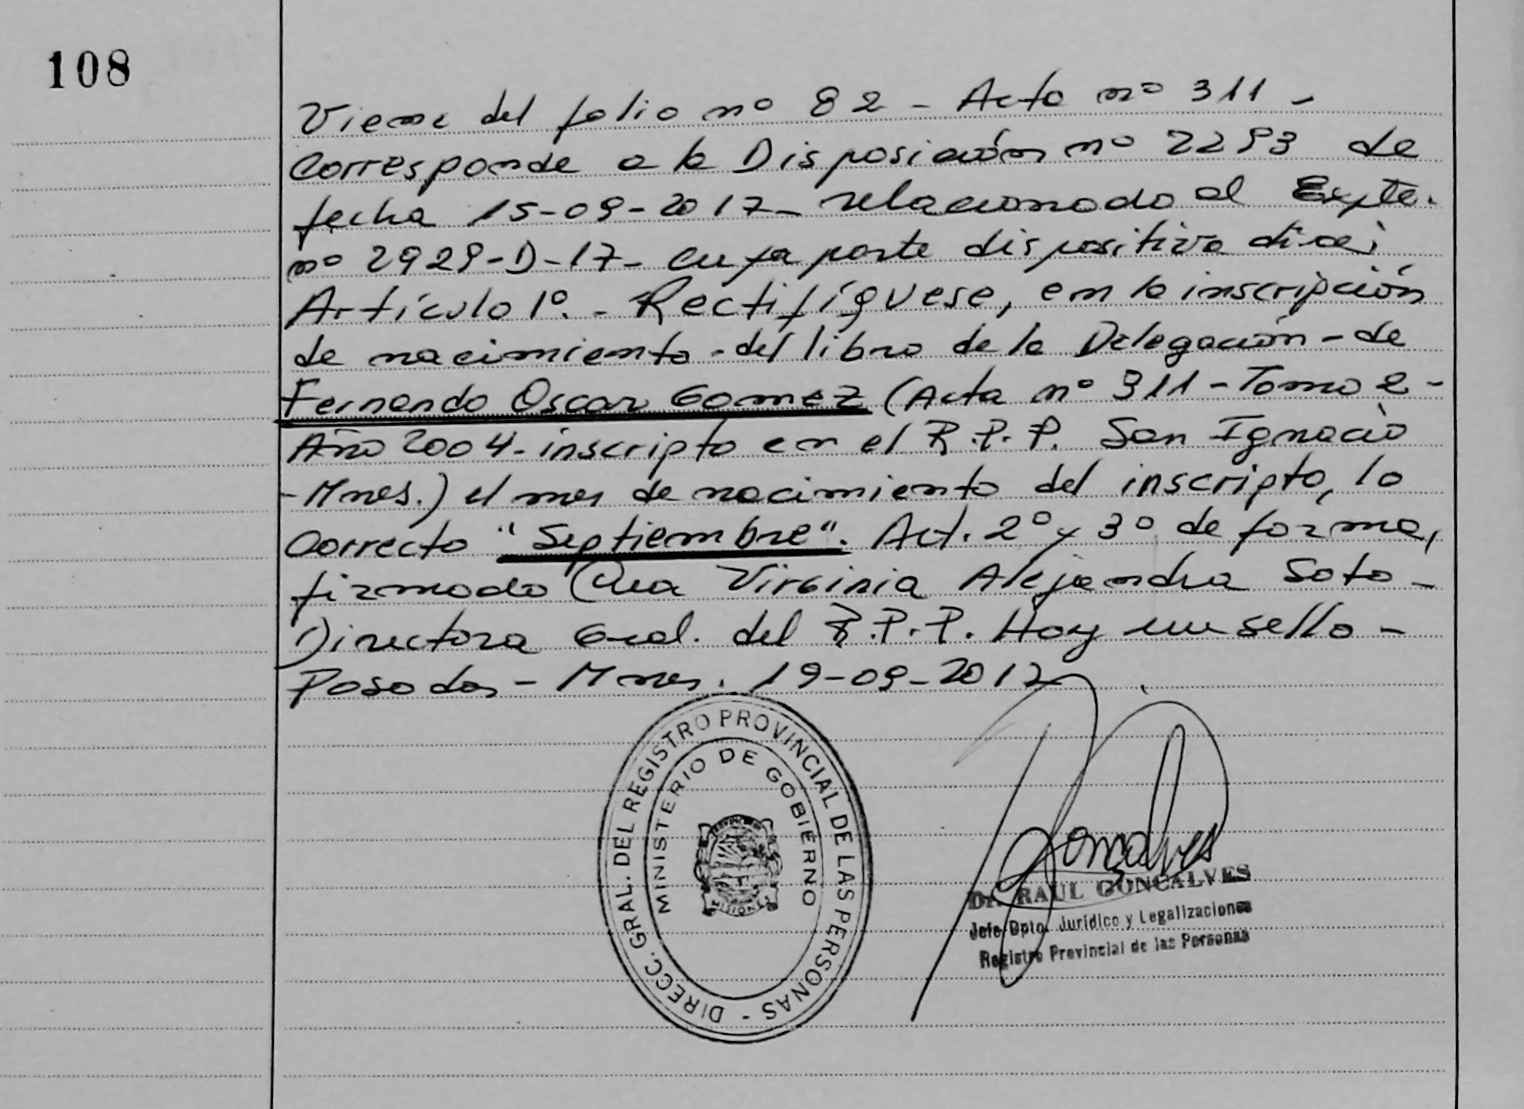 108
Viene del folio nº 82 - Acta nº 311 -
corresponde a la Disposición nº 2293 de
fecha 15-09-2017- relacionado al Expte.
nº 2929-D-17- cuya parte dispositiva dice:
Artículo 1º.- Rectifíquese, en la inscripción
de nacimiento - del libro de la Delegación - de
Fernando Oscar Gomez (Acta nº 311 - Tomo 2 -
Año 2004 - inscripto en el R.P.P. San Ignacio
- Mnes.) el mes de nacimiento del inscripto, lo
correcto "Septiembre". Art. 2º y 3º de forma,
firmado Cra Virginia Alejandra Soto -
Directora Gral. del R.P.P. Hay un sello -
Posadas - Mnes. 19-09-2017
DIRECC. GRAL. DEL REGISTRO PROVINCIAL DE LAS PERSONAS -
MINISTERIO DE GOBIERNO
MISIONES
Goncalves
Dr. RAUL GONCALVES
Jefe Dpto. Jurídico y Legalizaciones
Registro Provincial de las Personas